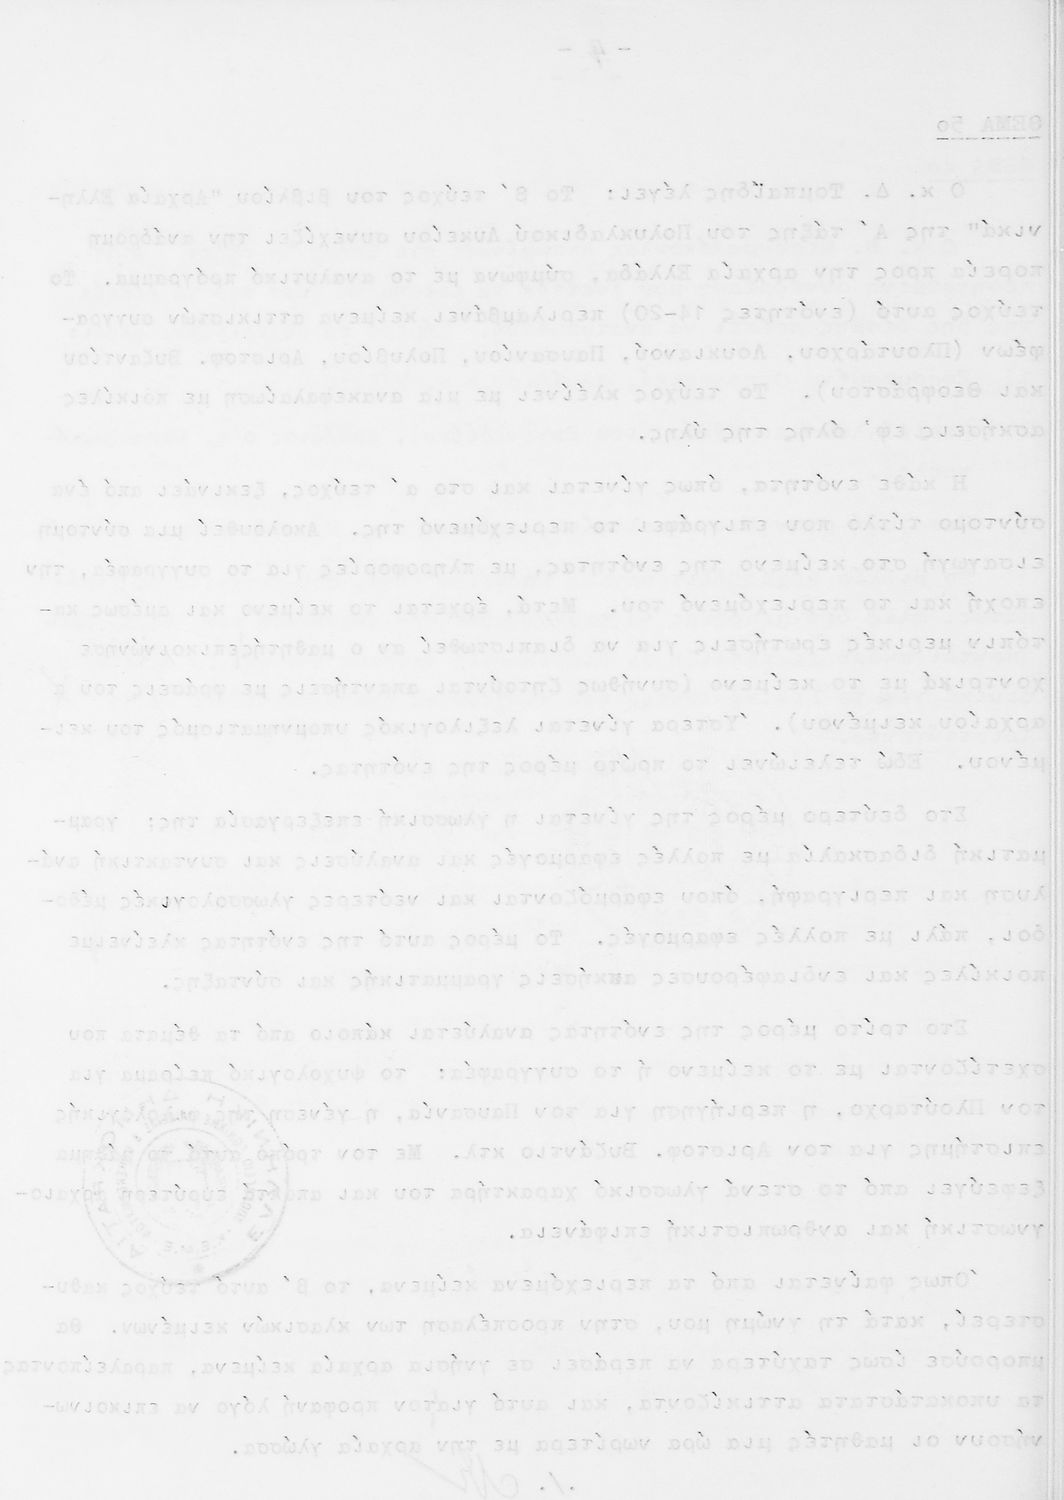 - 4 -
ΘΕΜΑ 5ο
Ο κ. Δ. Τομπαΐδης λέγει: Το β΄ τεύχος του βιβλίου "Αρχαία Ελλη-
νικά" της Α΄ τάξης του Πολυκλαδικού Λυκείου συνεχίζει την ανάδρομη
πορεία προς την αρχαία Ελλάδα, σύμφωνα μέ το αναλυτικό πρόγραμμα. Το
τεύχος αυτό (ενότητες 14-20) περιλαμβάνει κείμενα αττικιστών συγγρα-
φέων (Πλουτάρχου, Λουκιανού, Παυσανίου, Πολυβίου, Αριστοφ. Βυζαντίου
και Θεοφράστου). Το τεύχος κλείνει με μια ανακεφαλαίωση με ποικίλες
ασκήσεις εφ' όλης της ύλης.
Η κάθε ενότητα, όπως γίνεται και στο α΄ τεύχος, ξεκινάει από ένα
σύντομο τίτλο που επιγράφει το περιεχόμενό της. Ακολουθεί μια σύντομη
εισαγωγή στο κείμενο της ενότητας, με πληροφορίες για το συγγραφέα, την
εποχή και το περιεχόμενό του. Μετά, έρχεται το κείμενο και αμέσως κα-
τόπιν μερικές ερωτήσεις για να διαπιστωθεί αν ο μαθητήςεπικοινώνησε
χοντρικά με το κείμενο (συνήθως ζητούνται απαντήσεις με φράσεις του α
αρχαίου κειμένου). Ύστερα γίνεται λεξιλογικός υπομνηματισμός του κει-
μένου. Εδώ τελειώνει το πρώτο μέρος της ενότητας.
Στο δεύτερο μέρος της γίνεται η γλωσσική επεξεργασία της: γραμ-
ματική διδασκαλία με πολλές εφαρμογές και αναλύσεις και συντακτική ανά-
λυση και περιγραφή, όπου εφαρμόζονται και νεότερες γλωσσολογικές μέθο-
δοι, πάλι με πολλές εφαρμογές. Το μέρος αυτό της ενότητας κλείνειμε
ποικίλες και ενδιαφέρουσες ασκήσεις γραμματικής και σύνταξης.
Στο τρίτο μέρος της ενότητας αναλύεται κάποιο από τα θέματα που
σχετίζονται με το κείμενο ή το συγγραφέα: το ψυχολογικό πείραμα για
τον Πλούταρχο, η περιήγηση για τον Παυσανία, η γένεση της φιλολογικής
επιστήμης για τον Αριστοφ. Βυζάντιο κτλ. Με τον τρόπο αυτό το μάθημα
ξεφεύγει από το στενά γλωσσικό χαρακτήρα του και αποκτά ευρύτερη αρχαιο-
γνωστική και ανθρωπιστική επιφάνεια.
Όπως φαίνεται από τα περιεχόμενα κείμενα, το Β΄ αυτό τεύχος καθυ-
στερεί, κατά τη γνώμη μου, στην προσπέλαση των κλασικών κειμένων. Θα
μπορούσε ίσως ταχύτερα να περάσει σε γνήσια αρχαία κείμενα, παραλείποντας
τα υποκατάστατα αττικίζοντα, και αυτό γιατον προφανή λόγο να επικοινω-
νήσουν οι μαθητές μια ώρα νωρίτερα με την αρχαία γλώσσα.
./.